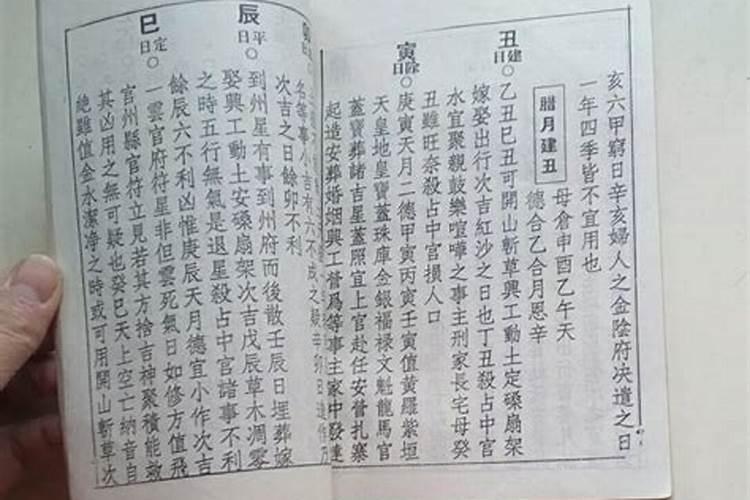 亥六甲窮日辛亥婦人之金陰府决遺之日
一年四季皆不宜用也
臘月建丑
母倉申酉乙午天
德合乙合月恩辛
丑建日○乙丑巳丑可開山斬草興工動土定磉扇架
嫁娶出行次吉紅沙之日也丁丑殺占中官
水宜聚親鼓樂喧嘩之事主刑家長宅母癸
丑雖旺奈殺占中宫損人口
寅除日○庚寅天月二德甲寅丙寅壬寅值黄羅紫垣
天皇地皇寶蓋珠庫金銀福禄文魁龍馬官
蓋寶葬諸吉星蓋照宜上官赴任安營扎寨
起造安葬婚姻興工普爲等事主家中發達
名等事小吉有六不成之疑辛卯日
次吉之日餘卯不利
辰平日○壬辰日埋葬嫁
到州星有事到州府而後散
娶興工動土安磉扇架次吉戊辰草木凋零
之時五行無氣是退星殺占中宫諸事不利
餘辰六不利凶惟庚辰天月德宜小作次吉
巳定日○一雲官府符星非但雲死氣日如修方值飛
官州縣官符立見若其方捨吉神聚積能效
其凶用之無可疑也癸巳天上空亡納音自
絶雖值金水潔净之時或可用開山斬草次